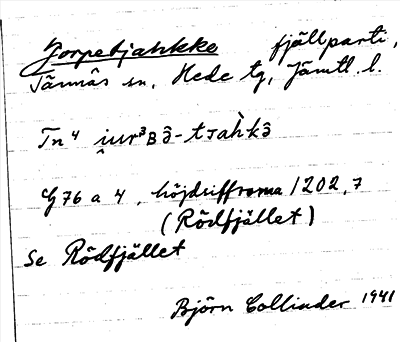 Jorpetjahkke fjällparti,
Tännäs sn, Hede tg, Jämtl. l.
Tn⁴ i̯ur³ʙə̑-tᴊàhkə̑
G 76 a 4, höjdsiffrorna 1202,7
(Rödfjället)
Se Rödfjället
Björn Collinder 1941